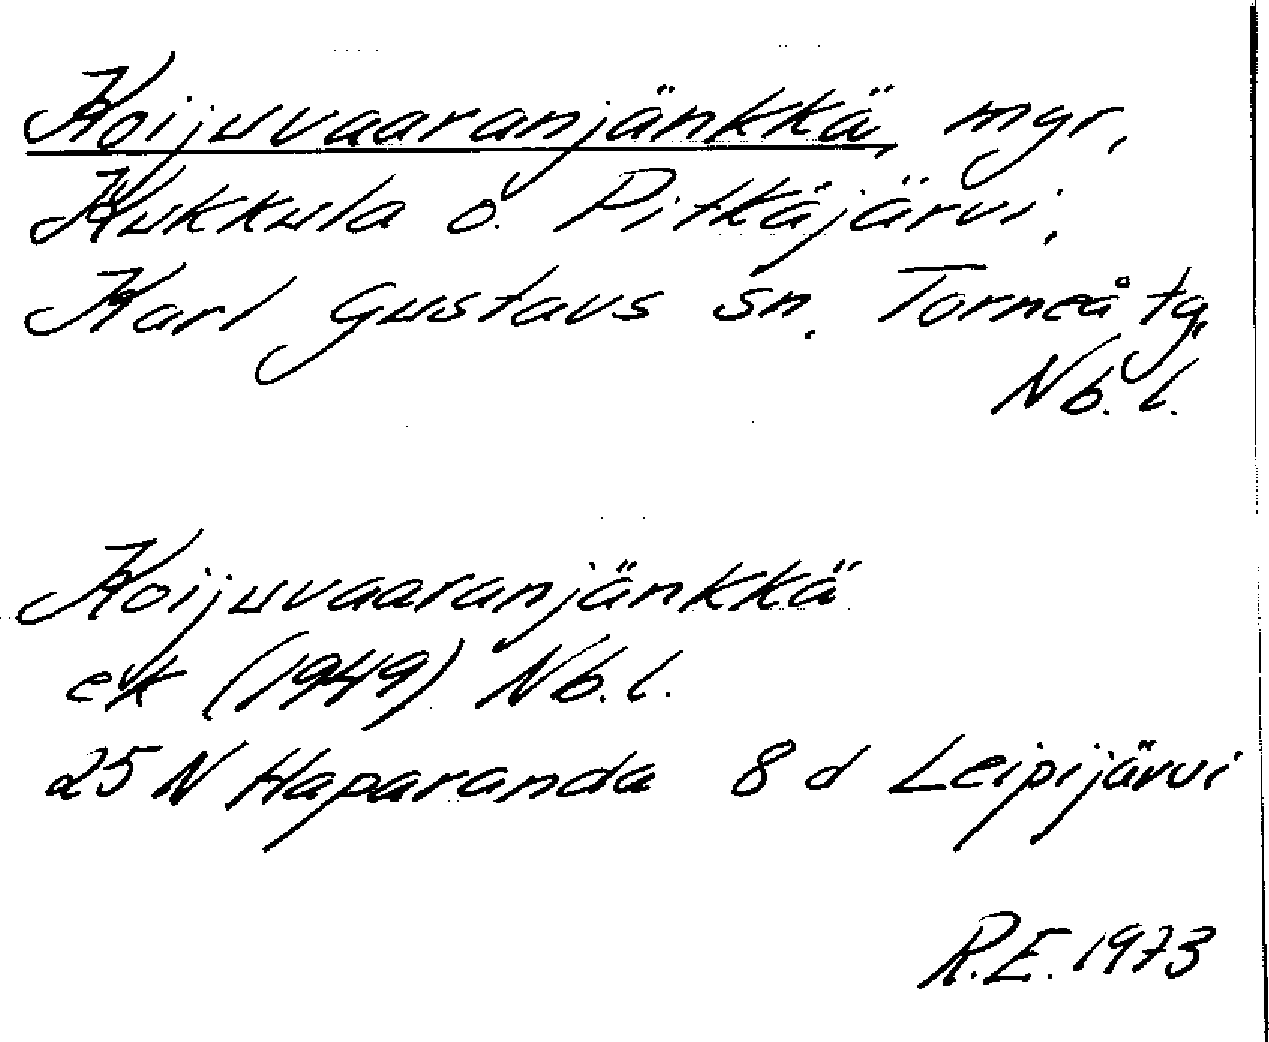 Koijuvaaranjänkkä, mgr,
Kukkula o. Pitkäjärvi,
Karl Gustavs sn. Torneå tg,
Nb. l.
Koijuvaaranjänkkä
ek (1949) Nb. l.
25 N Haparanda 8 d Leipijärvi
R.E. 1973